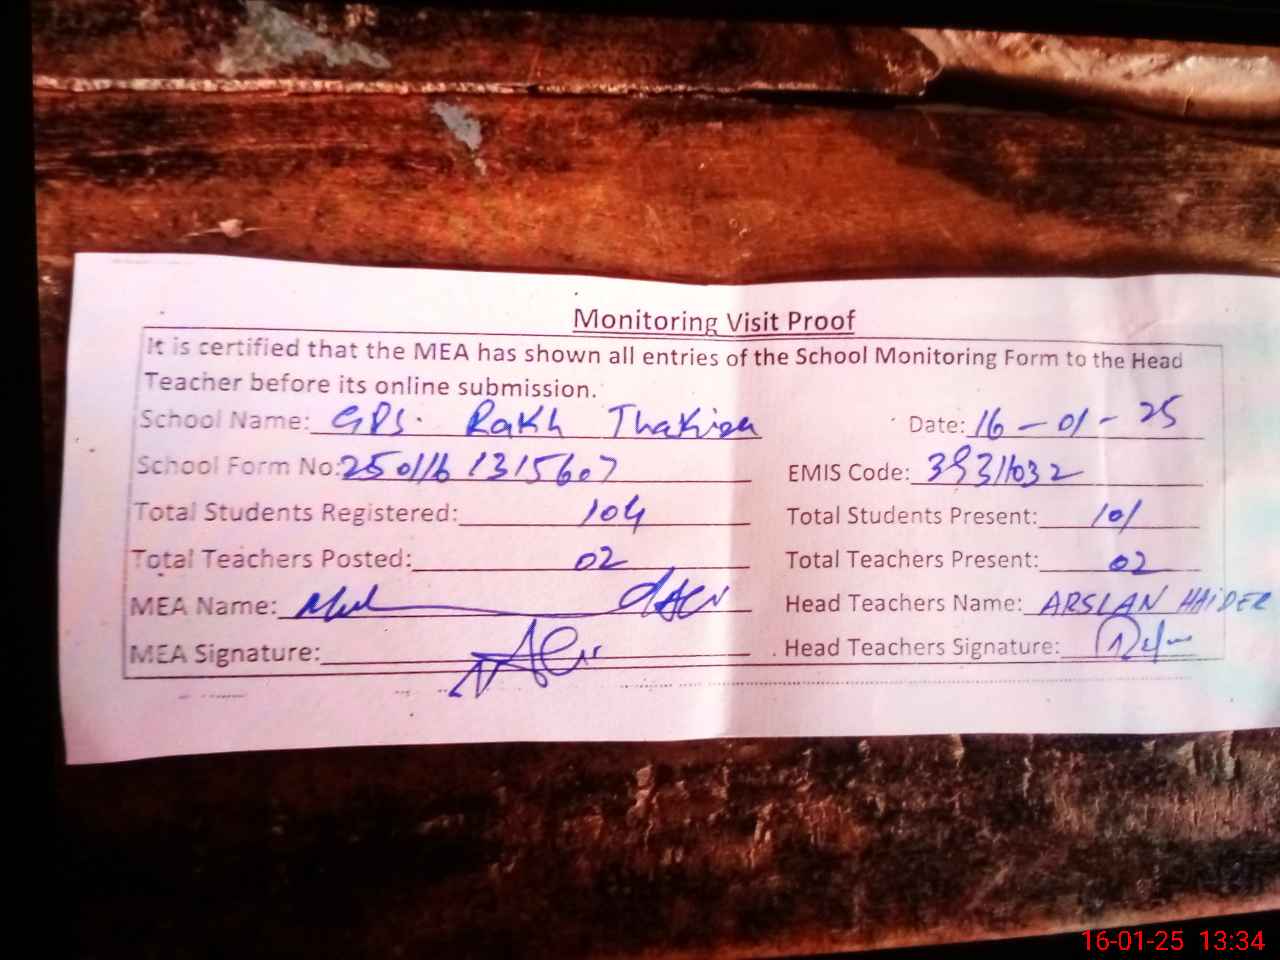 Monitoring Visit Proof
It is certified that the MEA has shown all entries of the School Monitoring Form to the Head
Teacher before its online submission.
School Name: GPS. Rakh Date: 16-01-25
School Form No: 250116 1315607 EMIS Code: 39311032
Total Students Registered: 104 Total Students Present: 101
Total Teachers Posted: 02 Total Teachers Present: 02
MEA Name: Head Teachers Name: ARSLAN HAIDER
MEA Signature: Head Teachers Signature:
16-01-25 13:34